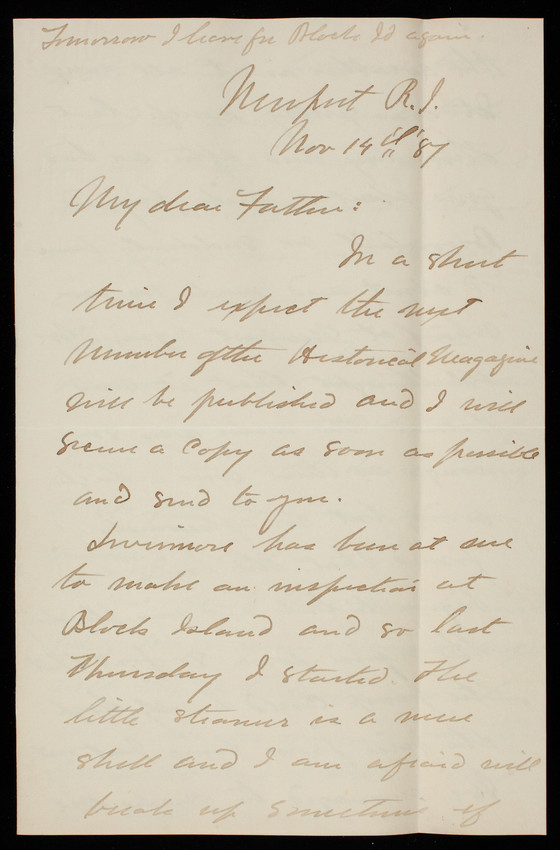 Tomorrow I leave for Block Id again.
Newport R.I.
Nov 14th 87
My dear Father:
In a short
time I expect the next
number of the Historical Magazine
will be published and I will
secure a copy as soon as possible
and send to you.
Livermore has been at me
to make an inspection at
Block Island and so last
Thursday I started. The
little steamer is a mere
shell and I am afraid will
break up sometime if